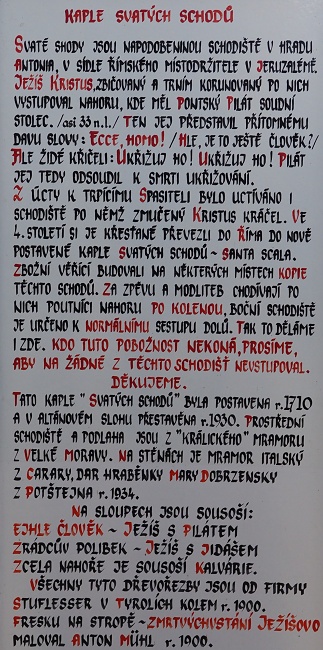 KAPLE SVATÝCH SCHODŮ
SVATÉ SHODY JSOU NAPODOBENINOU SCHODIŠTĚ V HRADU
ANTONIA, V SÍDLE ŘÍMSKÉHO MÍSTODRŽITELE V JERUZALÉMĚ.
JEŽÍŠ KRISTUS, ZBIČOVANÝ A TRNÍM KORUNOVANÝ PO NICH
VYSTUPOVAL NAHORU, KDE MĚL PONTSKÝ PILÁT SOUDNÍ
STOLEC. /asi 33 n.l./ TEN JEJ PŘEDSTAVIL PŘÍTOMNÉMU
DAVU SLOVY: ECCE, HOMO! /HLE, JE TO JEŠTĚ ČLOVĚK?/
ALE ŽIDÉ KŘIČELI: UKŘIŽUJ HO! UKŘIŽUJ HO! PILÁT
JEJ TEDY ODSOUDIL K SMRTI UKŘIŽOVÁNÍ.
Z ÚCTY K TRPÍCÍMU SPASITELI BYLO UCTÍVÁNO I
SCHODIŠTĚ PO NĚMŽ ZMUČENÝ KRISTUS KRÁČEL. VE
4. STOLETÍ SI JE KŘESŤANÉ PŘEVEZLI DO ŘÍMA DO NOVĚ
POSTAVENÉ KAPLE SVATÝCH SCHODŮ - SANTA SCALA.
ZBOŽNÍ VĚŘÍCÍ BUDOVALI NA NĚKTERÝCH MÍSTECH KOPIE
TĚCHTO SCHODŮ. ZA ZPĚVU A MODLITEB CHODÍVAJÍ PO
NICH POUTNÍCI NAHORU PO KOLENOU, BOČNÍ SCHODIŠTĚ
JE URČENO K NORMÁLNÍMU SESTUPU DOLŮ. TAK TO DĚLÁME
I ZDE. KDO TUTO POBOŽNOST NEKONÁ, PROSÍME,
ABY NA ŽÁDNÉ Z TĚCHTO SCHODIŠŤ NEVSTUPOVAL.
DĚKUJEME.
TATO KAPLE "SVATÝCH SCHODŮ" BYLA POSTAVENA r. 1710
A V ALTÁNOVÉM SLOHU PŘESTAVĚNA r. 1930. PROSTŘEDNÍ
SCHODIŠTĚ A PODLAHA JSOU Z "KRÁLICKÉHO" MRAMORU
Z VELKÉ MORAVY. NA STĚNÁCH JE MRAMOR ITALSKÝ
Z CARARY, DAR HRABĚNKY MARY DOBRZENSKY
Z POTŠTEJNA r. 1934.
NA SLOUPECH JSOU SOUSOŠÍ:
EJHLE ČLOVĚK - JEŽÍŠ S PILÁTEM
ZRÁDCŮV POLIBEK - JEŽÍŠ S JIDÁŠEM
ZCELA NAHOŘE JE SOUSOŠÍ KALVÁRIE.
VŠECHNY TYTO DŘEVOŘEZBY JSOU OD FIRMY
STUFLESSER V TYROLÍCH KOLEM r. 1900.
FRESKU NA STROPĚ - ZMRTVÝCHVSTÁNÍ JEŽÍŠOVO
MALOVAL ANTON MÜHL r. 1900.